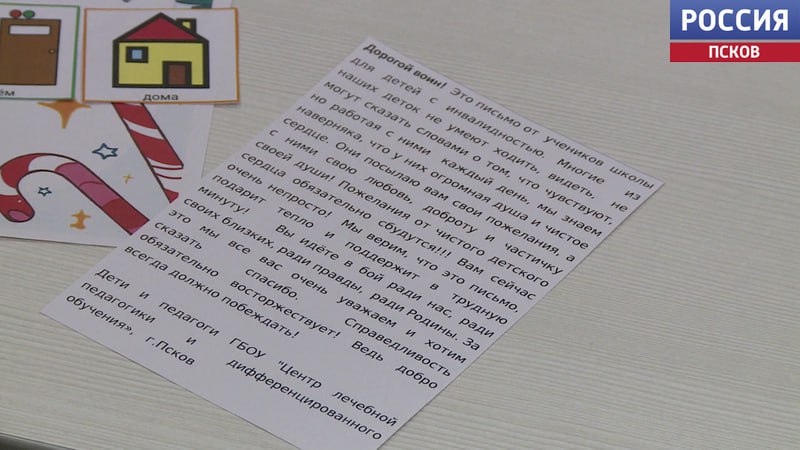 РОССИЯ
ПСКОВ
дома
Дорогой воин! Это письмо от учеников школы
для детей с инвалидностью. Многие из
наших деток не умеют ходить, видеть, не
могут сказать словами о том, что чувствуют,
но работая с ними каждый день, мы знаем
наверняка, что у них огромная душа и чистое
сердце. Они посылаю вам свои пожелания, а
с ними свою любовь, доброту и частичку
своей души! Пожелания от чистого детского
сердца обязательно сбудутся!!! Вам сейчас
очень непросто! Мы верим, что это письмо
подарит тепло и поддержит в трудную
минуту! Вы идёте в бой ради нас, ради
своих близких, ради правды, ради Родины. За
это мы все вас очень уважаем и хотим
сказать спасибо. Справедливость
обязательно восторжествует! Ведь добро
всегда должно побеждать!
Дети и педагоги ГБОУ "Центр лечебной
педагогики и дифференцированного
обучения», г.Псков